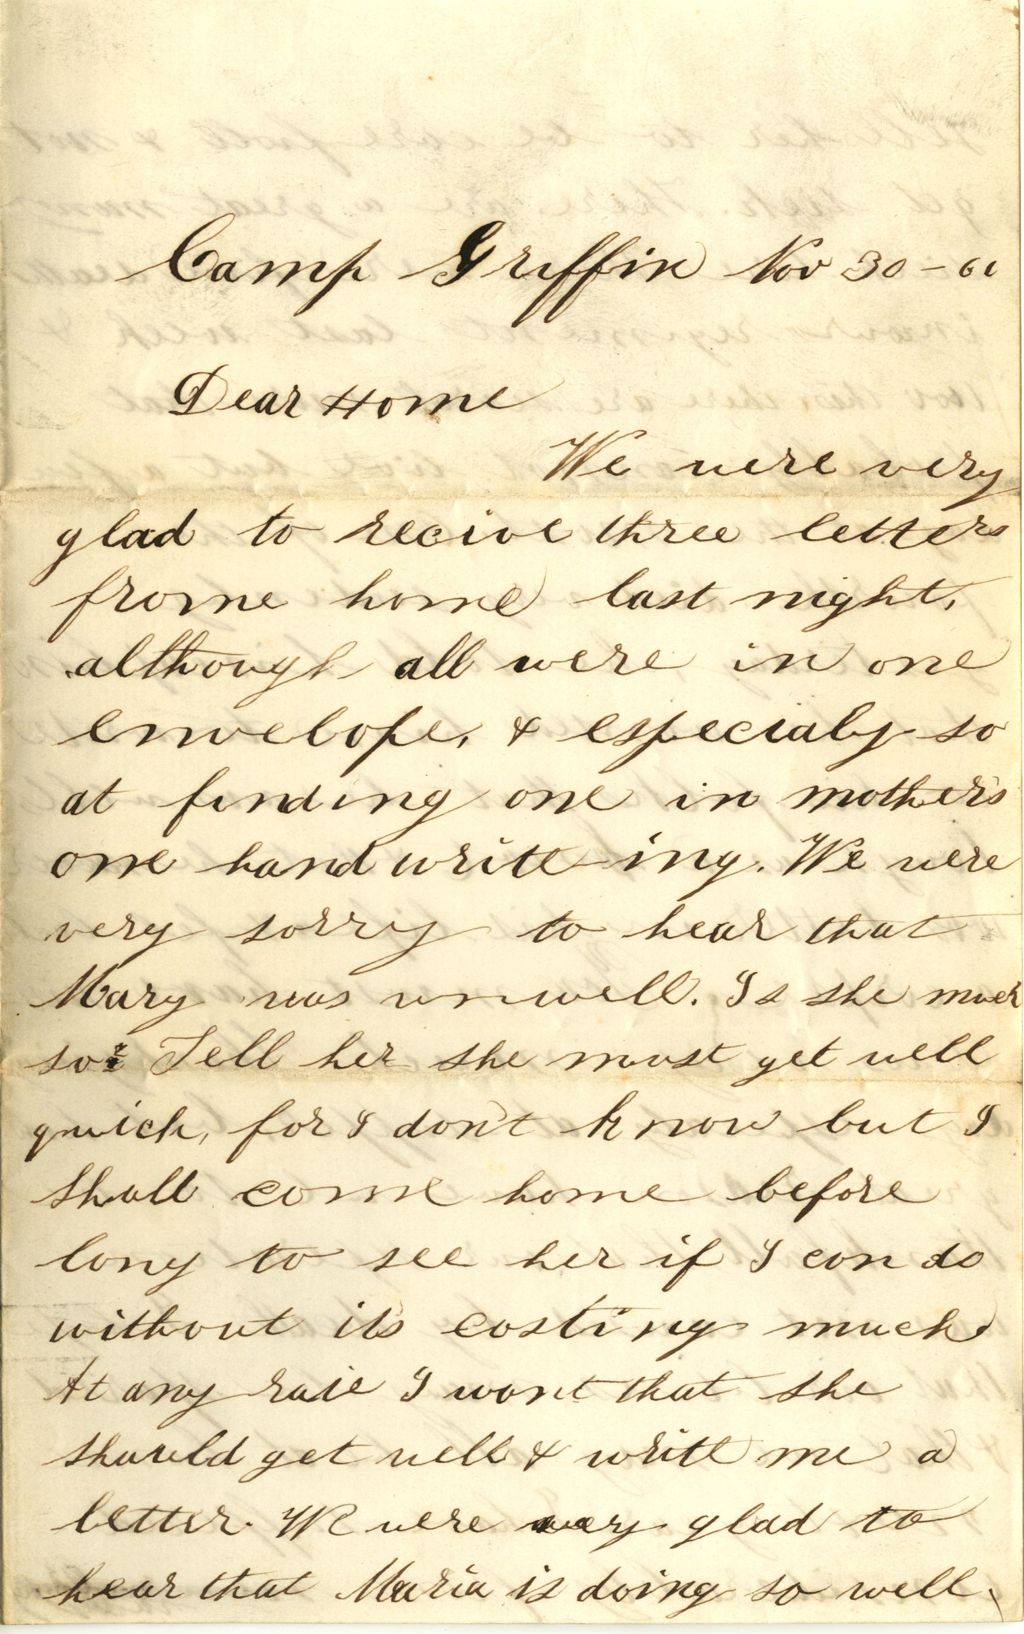 Camp Griffin Nov 30 - 61
Dear Home
We were very
glad to recive three letters
frome home last night,
although all were in one
envelope, & especialy so
at finding one in mothers
one hand writt-ing. We were
very sorry to hear that
Mary was unwell. Is she much
so? Tell her she must get well
quick, for I don't know but I
shall come home before
long to see her if I can do
without its costing much
At any rate I want that she
should get well & write me a
letter. We were very glad to
hear that Maria is doing so well,